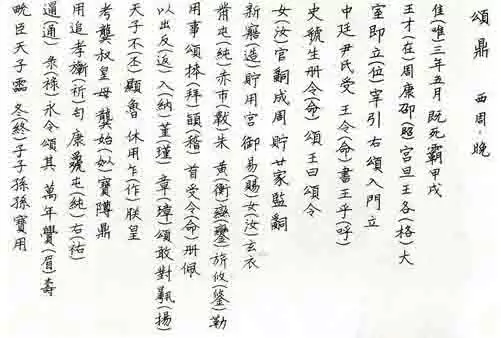 頌鼎 西周·晚
隹(唯)三年五月既死霸甲戌
王才(在)周康卲宮旦王各(格)大
室即立(位)宰引右頌入門立
中廷尹氏受 王令(命)書王乎(呼)
史虢生册令(命)頌王曰頌令
女(汝)官嗣成周貯廿家監嗣
新(造)貯用宮御易(賜)女(汝)玄衣
黹屯(純)赤巿(韍)朱 黃(衡)䜌(鑾)旂攸(鋚)勒
用事頌捧(拜)䭫(稽)首受令(命)册佩
以出反(返)入(納)堇(瑾)章(璋)頌敢對揚(揚)
天子不(丕)顯魯 休用乍(作)朕皇
考龏叔皇母 龏始(姒)寶鼎
用追孝(祈)匃 康屯(純)右(祐)
(通)彔(祿)永令頌其 萬年釁(眉)壽
畯臣天子霝 冬(終)子子孫孫寶用